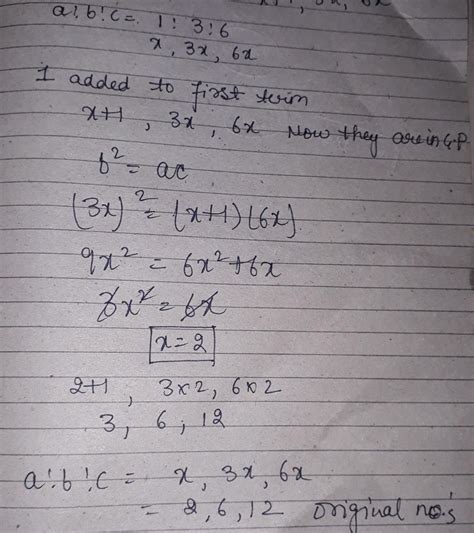 x+1, 3x, 6x
a:b:c = 1:3:6
x, 3x, 6x
1 added to first term
x+1, 3x, 6x Now they are in G.P
b² = ac
(3x)² = (x+1)(6x)
9x² = 6x²+6x
3x² = 6x
x=2
2+1, 3×2, 6×2
3, 6, 12
a:b:c = x, 3x, 6x
= 2, 6, 12 original no's